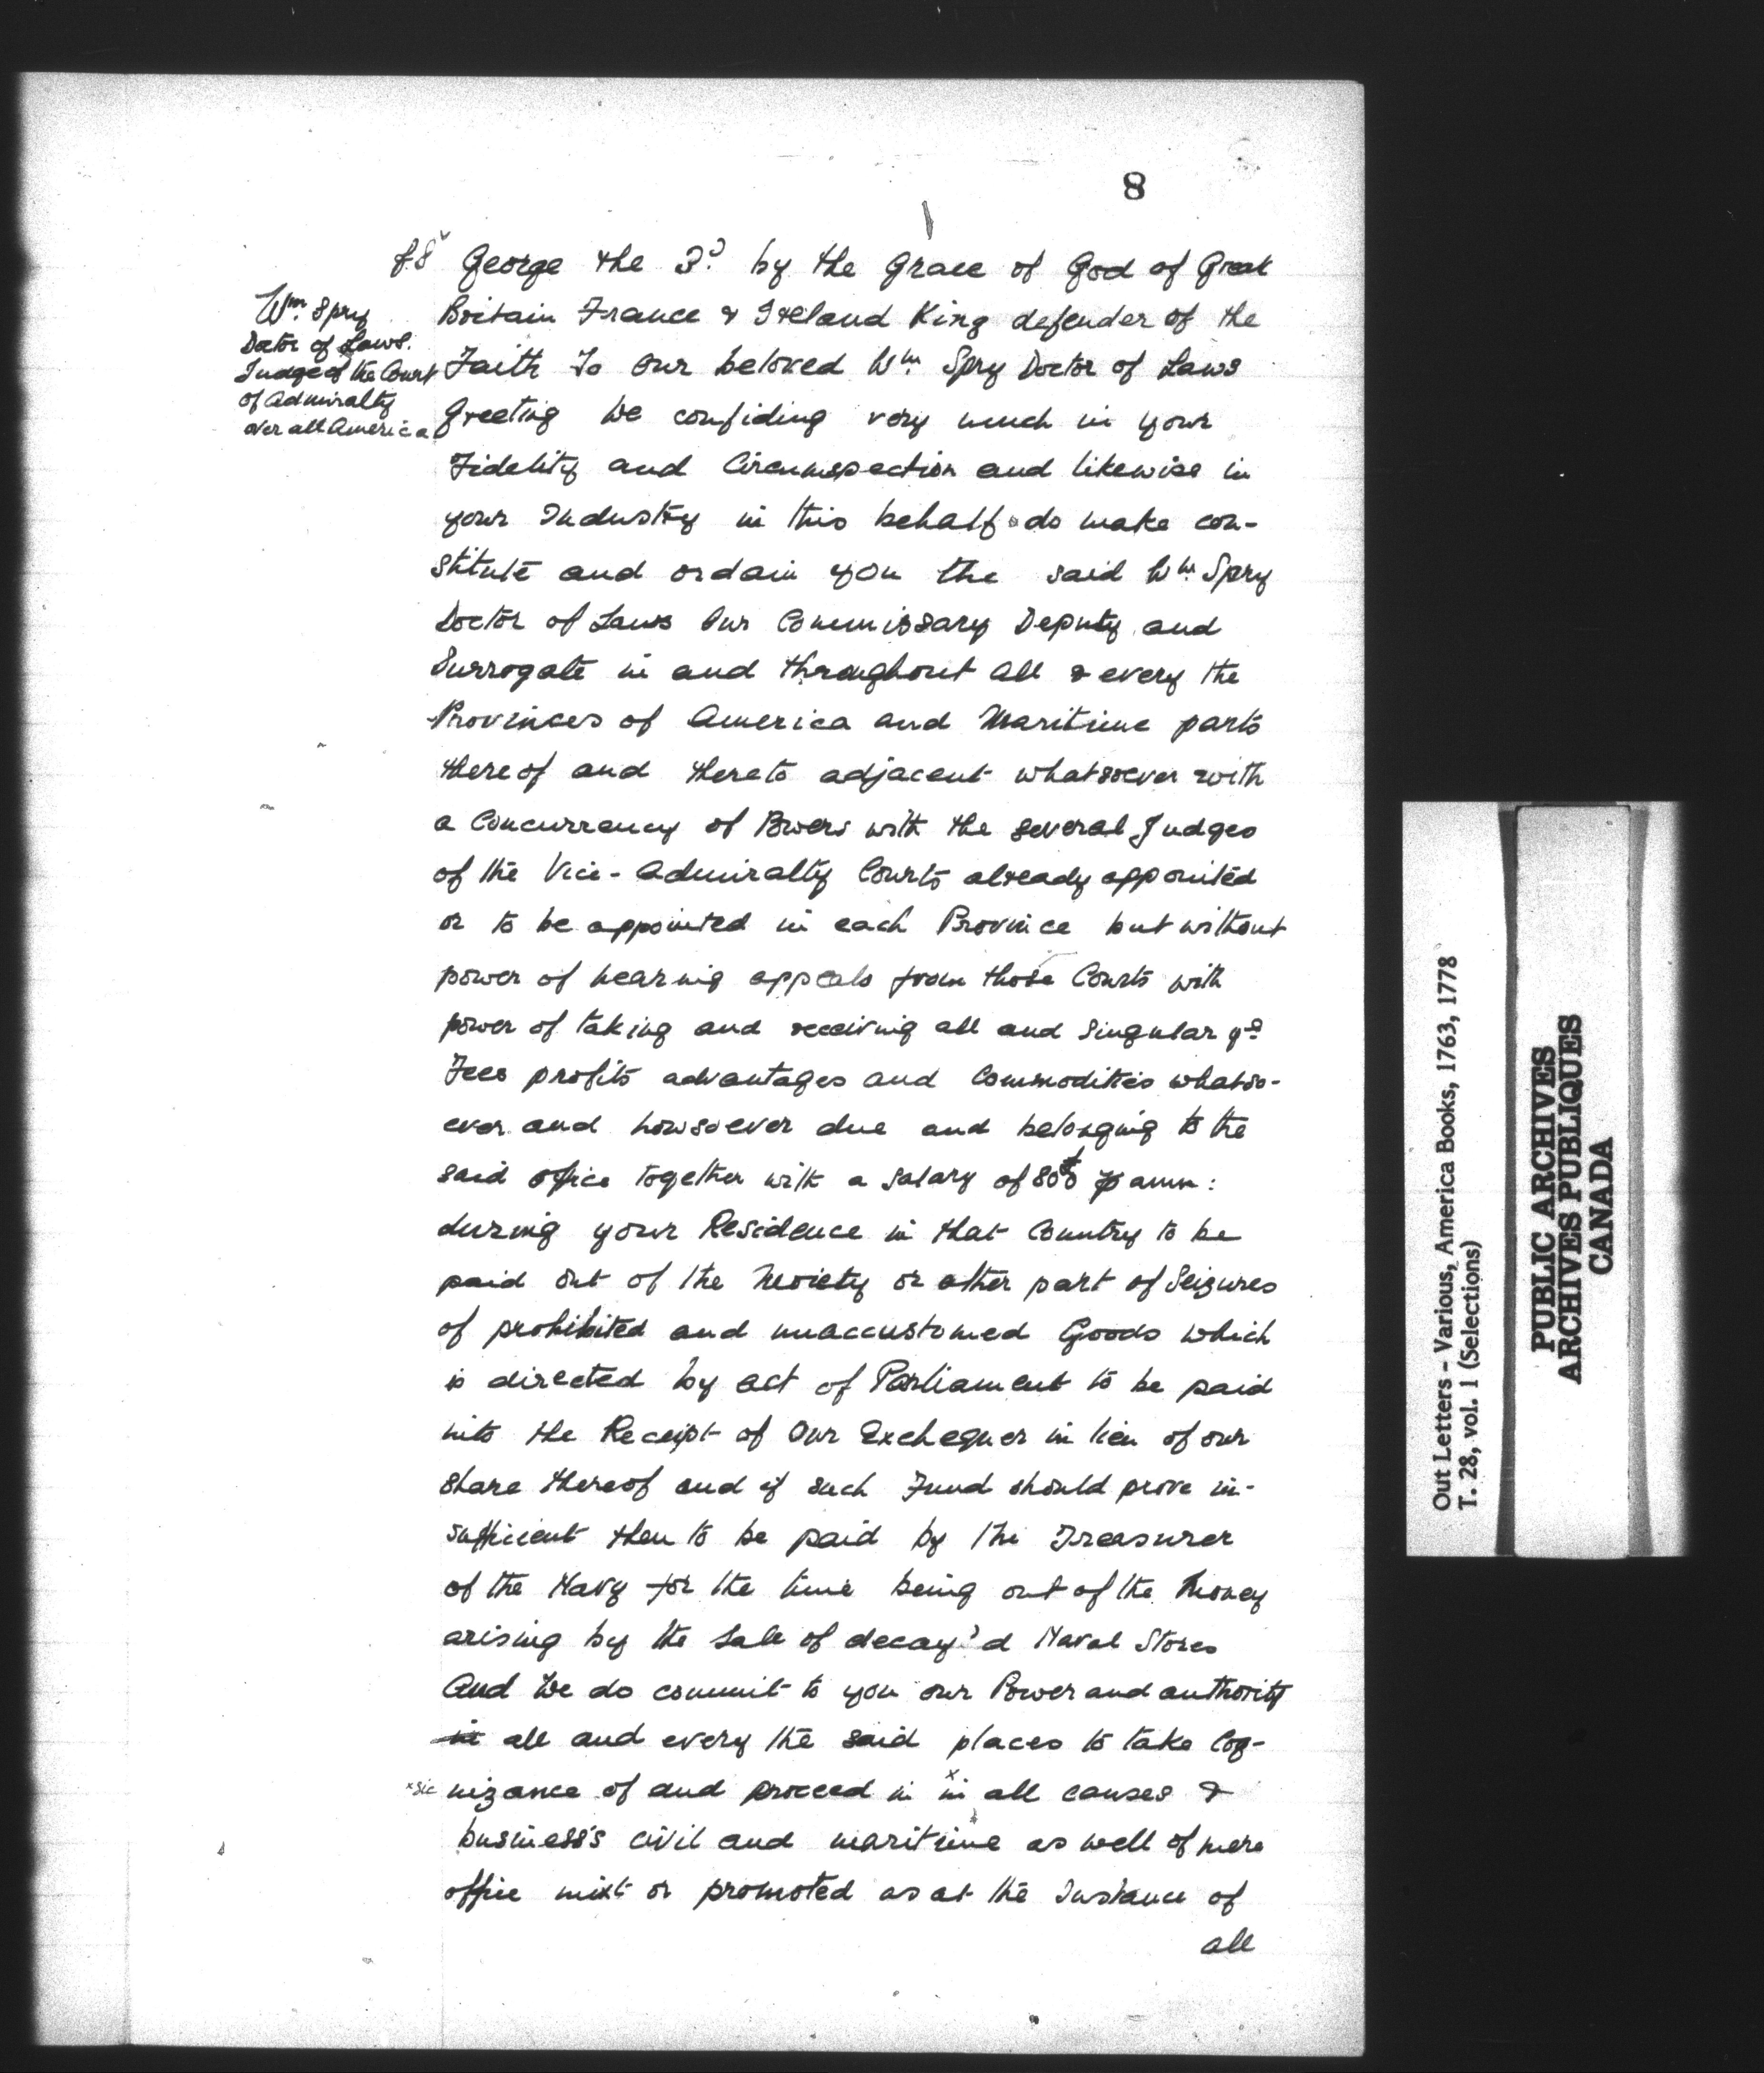 8
f.8v George the 3d. by the Grace of God of Great
Wm. Spry
Doctor of Laws.
Judge of the Court
of Admiralty
over all America
Britain France & Ireland King defender of the
Faith To our beloved Wm. Spry Doctor of Laws
Greeting We confiding very much in your
Fidelity and Circumspection and likewise in
your Industry in this behalf do make con-
stitute and ordain you the said Wm. Spry
Doctor of Laws Our Commissary Deputy and
Surrogate in and throughout all & every the
Provinces of America and Maritime parts
thereof and thereto adjacent whatsoever with
a Concurrency of Powers with the several Judges
of the Vice-Admiralty Courts already appointed
or to be appointed in each Province but without
power of hearing appeals from those Courts with
power of taking and receiving all and singular
Fees profits advantages and Commodities whatso-
ever and howsoever due and belonging to the
said office together with a Salary of 800£ ⅌ ann:
during your Residence in that Country to be
paid out of the Moiety or other part of Seizures
of prohibited and unaccustomed Goods which
is directed by act of Parliament to be paid
into the Receipt of Our Exchequer in lieu of our
share thereof and if such Fund should prove in-
sufficient then to be paid by the Treasurer
of the Navy for the time being out of the Money
arising by the Sale of decay'd Naval Stores
And We do commit to you our Power and authority
in all and every the said places to take Cog-
x sic nizance of and proceed in in x all causes &
business's civil and maritime as well of mere
office mixt or promoted as at the Instance of
all
Out Letters - Various, America Books, 1763, 1778
T. 28, vol. 1 (Selections)
PUBLIC ARCHIVES
ARCHIVES PUBLIQUES
CANADA